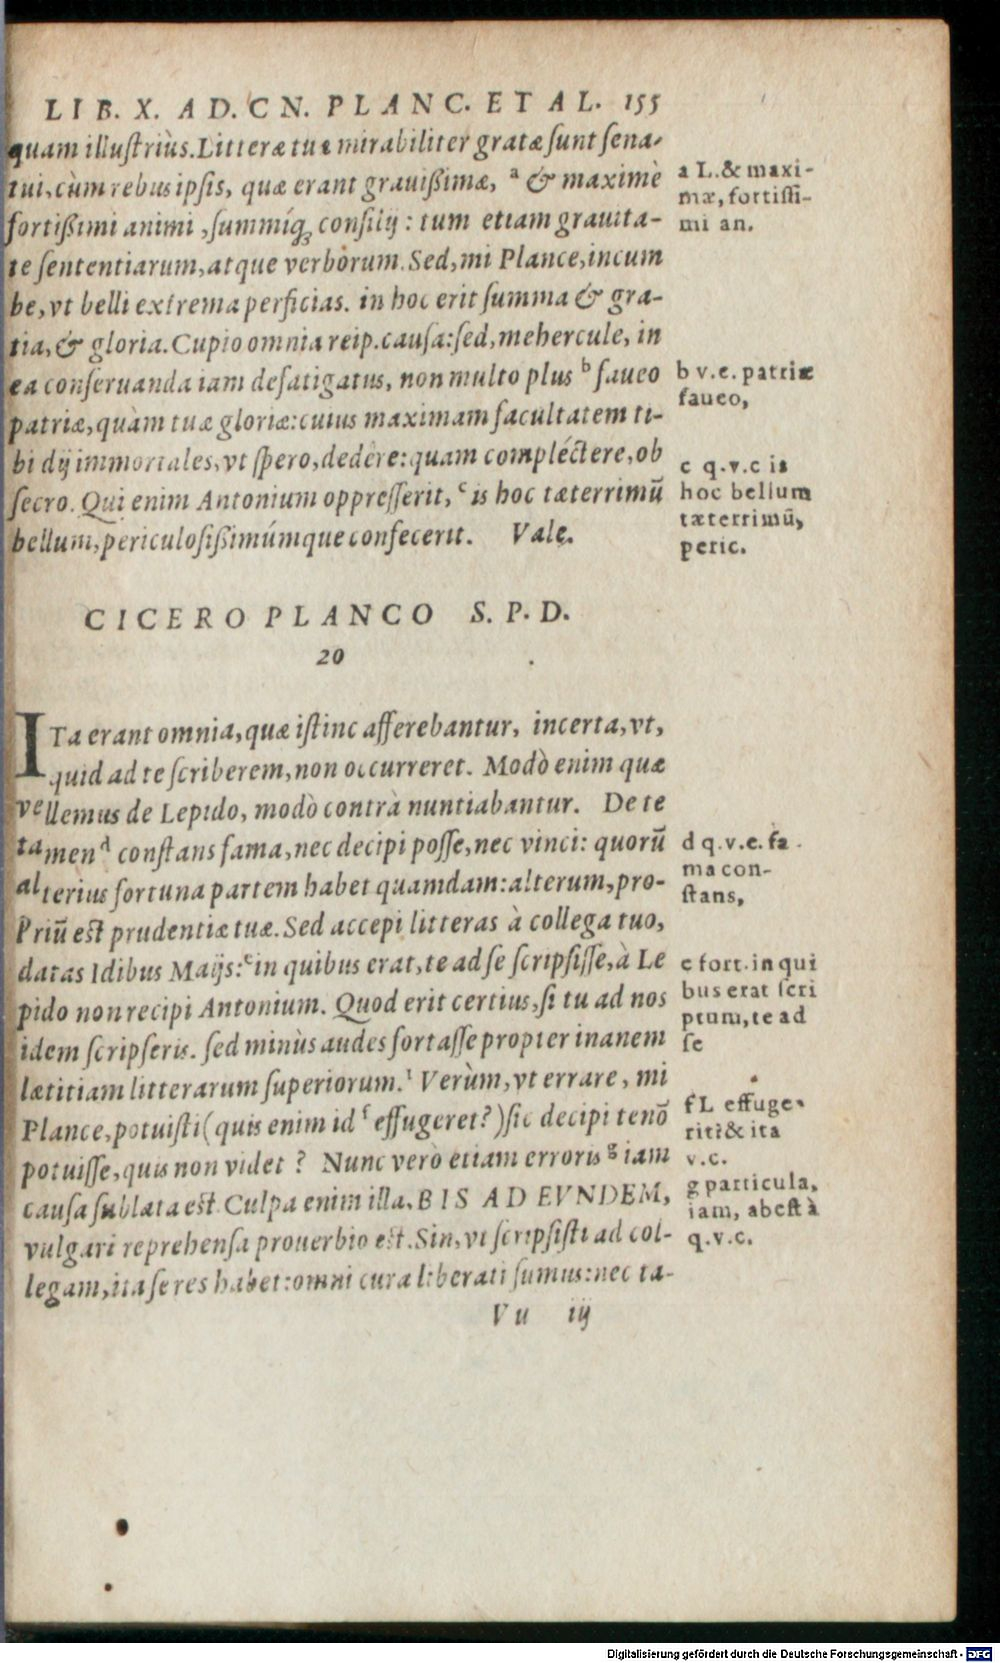 LIB. X. AD. CN. PLANC. ET AL. 155
quam illustriùs. Litteræ tuæ mirabiliter gratæ sunt sena-
tui, cùm rebus ipsis, quæ erant grauißimæ, ᵃ & maximè
fortißimi animi, summíq; consilij: tum etiam grauita-
te sententiarum, atque verborum. Sed, mi Plance, incum
be, vt belli extrema perficias. in hoc erit summa & gra-
tia, & gloria. Cupio omnia reip. causa: sed, mehercule, in
ea conseruanda iam defatigatus, non multo plus ᵇ faueo
patriæ, quàm tuæ gloriæ: cuius maximam facultatem ti-
bi dij immortales, vt spero, dedêre: quam complectére, ob
secro. Qui enim Antonium oppresserit, ᶜ is hoc tæterrimū
bellum, periculosißimúmque confecerit. Vale.
a L. & maxi-
mæ, fortissi-
mi an.
b v.e. patriæ
faueo,
c q.v.c is
hoc bellum
tæterrimū,
peric.
CICERO PLANCO S. P. D.
20
ITa erant omnia, quæ istinc afferebantur, incerta, vt,
quid ad te scriberem, non occurreret. Modò enim quæ
vellemus de Lepido, modò contrà nuntiabantur. De te
tamen ᵈ constans fama, nec decipi posse, nec vinci: quorū
alterius fortuna partem habet quamdam: alterum, pro-
priū est prudentiæ tuæ. Sed accepi litteras à collega tuo,
datas Idibus Maijs: ᵉ in quibus erat, te ad se scripsisse, à Le
pido non recipi Antonium. Quod erit certius, si tu ad nos
idem scripseris. sed minùs audes fortasse propter inanem
lætitiam litterarum superiorum. Verùm, vt errare, mi
Plance, potuisti (quis enim id ᶠ effugeret?) sic decipi te nō
potuisse, quis non videt? Nunc verò etiam erroris ᵍ iam
causa sublata est. Culpa enim illa, BIS AD EVNDEM,
vulgari reprehensa prouerbio est. Sin, vt scripsisti ad col-
legam, ita se res habet: omni cura liberati sumus: nec ta-
d q.v.e. fa
ma con-
stans,
e fort. in qui
bus erat scri
ptum, te ad
se
f L effuge-
rit? & ita
v.c.
g particula,
iam, abest à
q.v.c.
Vu iij
Digitalisierung gefördert durch die Deutsche Forschungsgemeinschaft - DFG